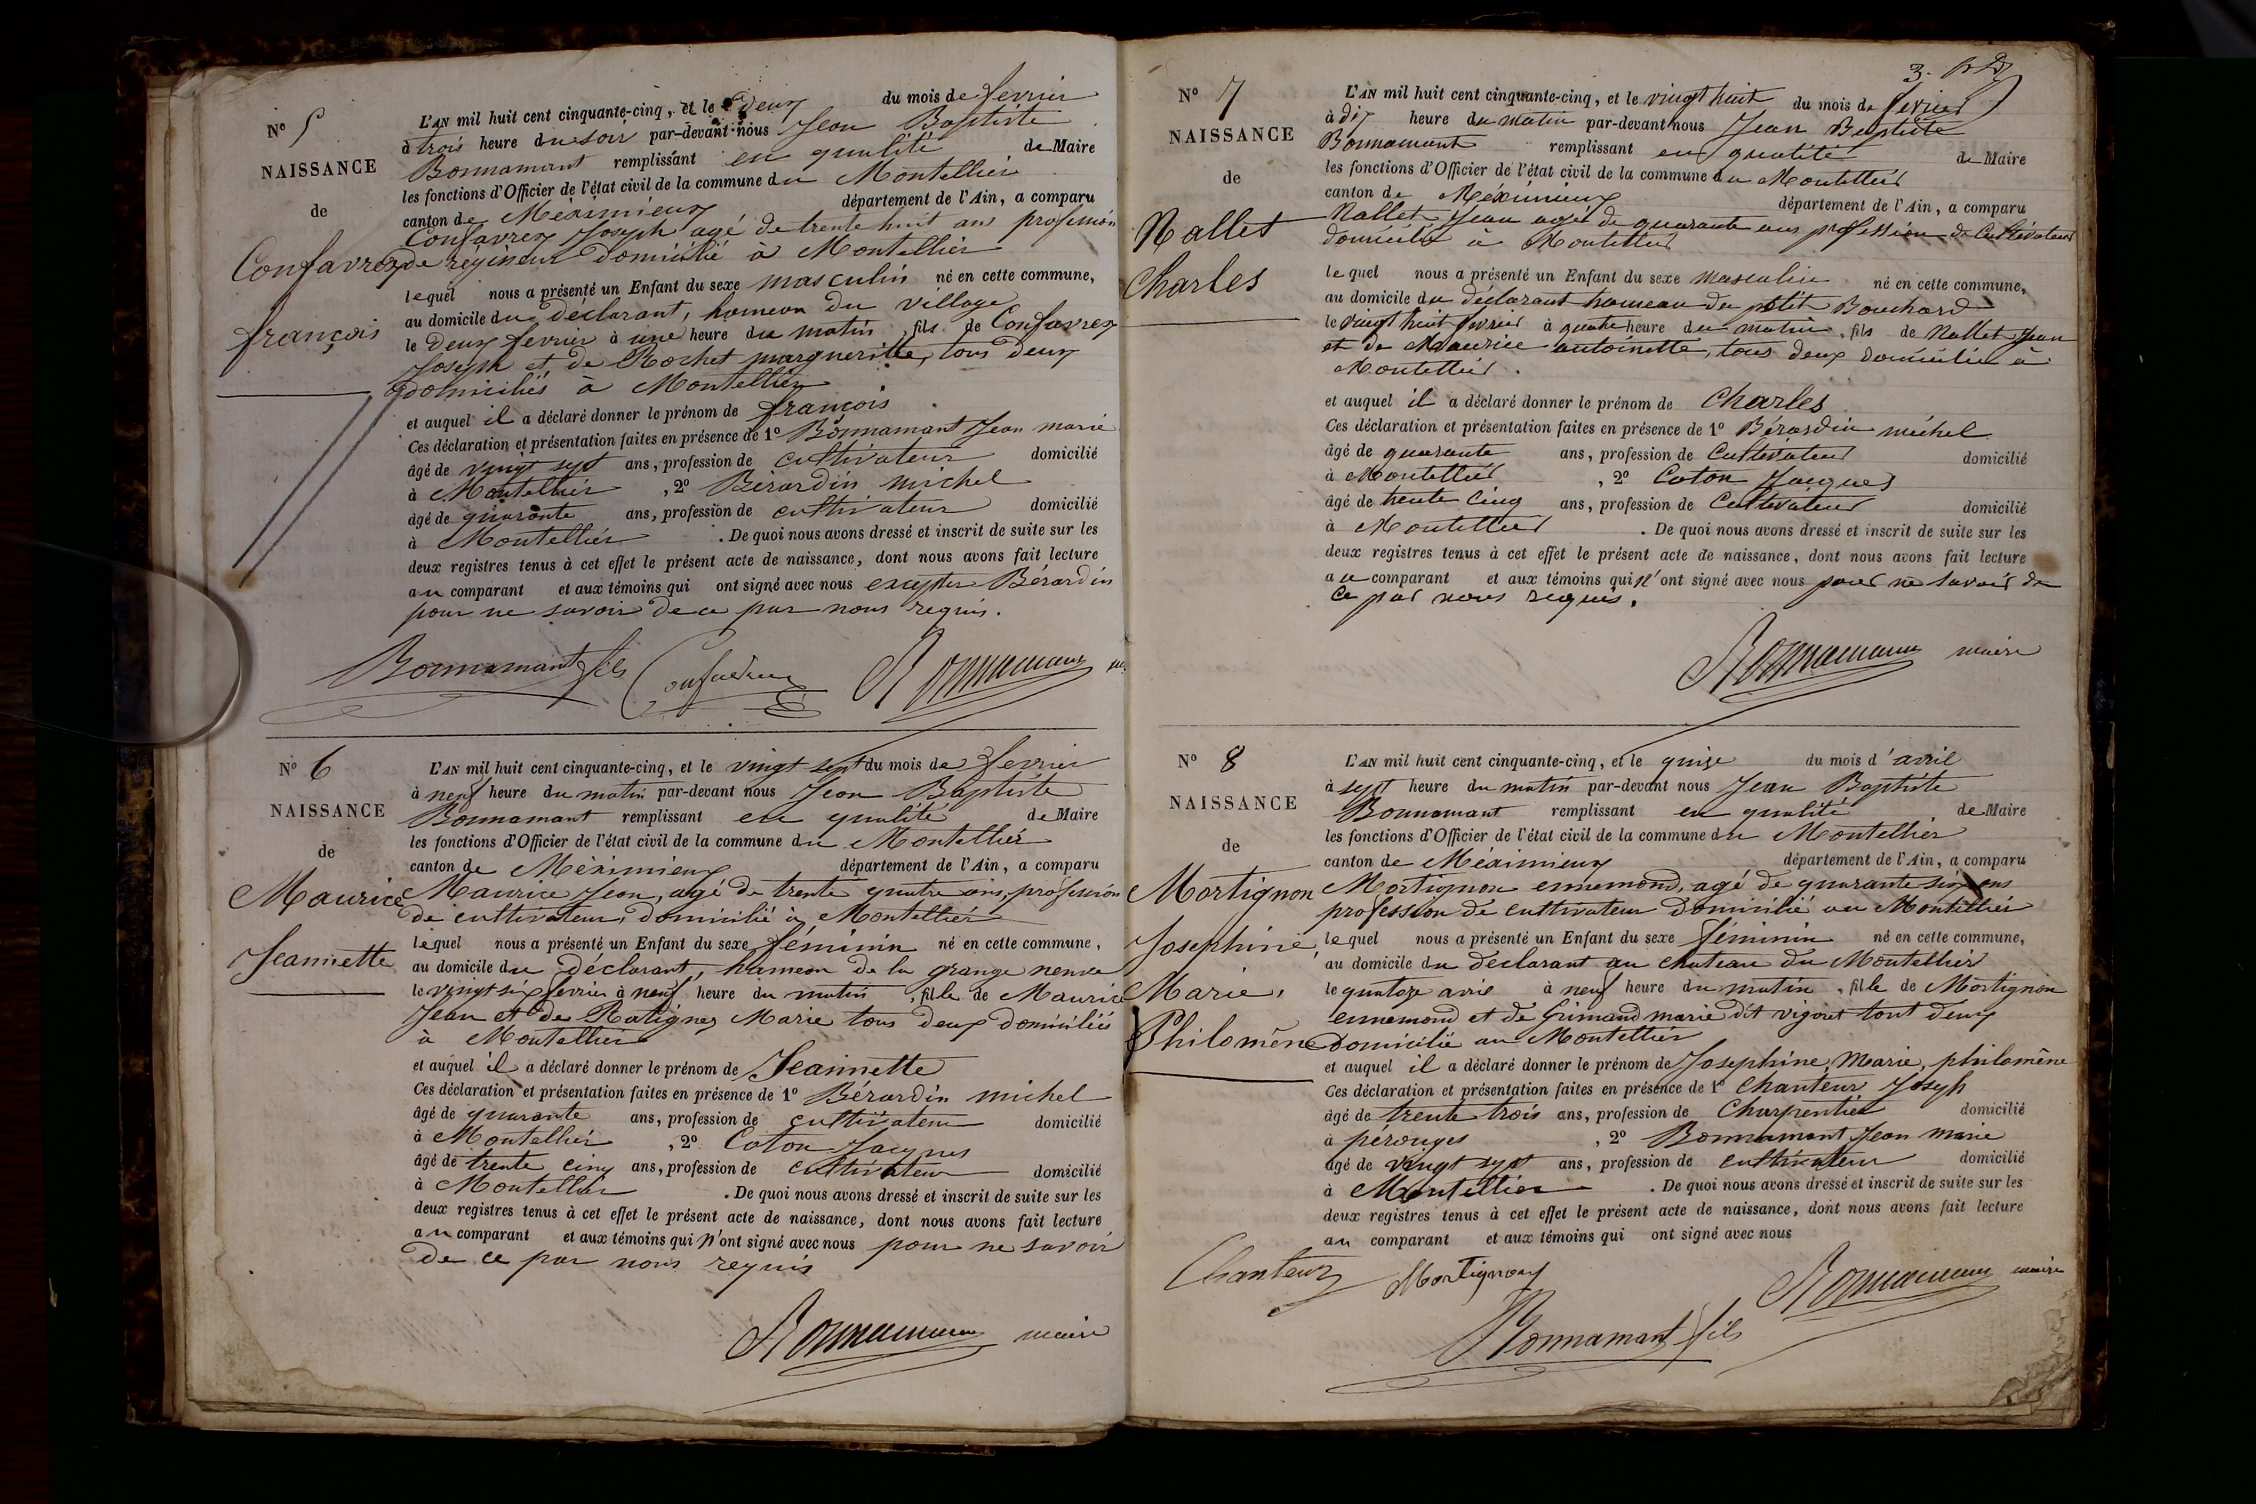 N° 5
NAISSANCE
de
Confavrez
françois
L'AN mil huit cent cinquante-cinq, et le deux du mois de fevrier
à trois heure du soir par-devant nous Jean Baptiste
Bonnamant remplissant en qualité de Maire
les fonctions d'Officier de l'état civil de la commune du Montellier
canton de Méximieux département de l'Ain, a comparu
Confavrez Joseph agé de trente huit ans profession
de regisseur domicilié à Montellier
lequel nous a présenté un Enfant du sexe masculin né en cette commune,
au domicile du déclarant, hameau du village
le deux fevrier à une heure du matin, fils de Confavrez
Joseph et de Rochet margueritte, tous deux
domiciliés à Montellier
et auquel il a déclaré donner le prénom de françois.
Ces déclaration et présentation faites en présence de 1° Bonnamant Jean marie
âgé de vingt sept ans, profession de cultivateur domicilié
à Montellier, 2° Bérardin michel
âgé de quarante ans, profession de cultivateur domicilié
à Montellier. De quoi nous avons dressé et inscrit de suite sur les
deux registres tenus à cet effet le présent acte de naissance, dont nous avons fait lecture
au comparant et aux témoins qui ont signé avec nous excepter Bérardin
pour ne savoir de ce par nous requis.
Bonnamant fils Confavrez Bonnamant
N° 6
NAISSANCE
de
Maurice
Jeannette
L'AN mil huit cent cinquante-cinq, et le vingt sept du mois de fevrier
à neuf heure du matin par-devant nous Jean Baptiste
Bonnamant remplissant en qualité de Maire
les fonctions d'Officier de l'état civil de la commune du Montellier
canton de Méximieux département de l'Ain, a comparu
Maurice Jean, agé de trente quatre ans, profession
de cultivateur, domicilié à Montellier
lequel nous a présenté un Enfant du sexe féminin né en cette commune,
au domicile du déclarant, hameau de la grange neuve
le vingt six fevrier à neuf heure du matin, fille de Maurice
Jean et de Ratignez Marie tous deux domiciliés
à Montellier
et auquel il a déclaré donner le prénom de Jeannette
Ces déclaration et présentation faites en présence de 1° Bérardin michel
âgé de quarante ans, profession de cultivateur domicilié
à Montellier, 2° Coton Jacques
âgé de trente cinq ans, profession de cultivateur domicilié
à Montellier. De quoi nous avons dressé et inscrit de suite sur les
deux registres tenus à cet effet le présent acte de naissance, dont nous avons fait lecture
au comparant et aux témoins qui n'ont signé avec nous pour ne savoir
de ce par nous requis
Bonnamant maire
3.
N° 7
NAISSANCE
de
Nallet
Charles
L'AN mil huit cent cinquante-cinq, et le vingt huit du mois de fevrier
à dix heure du matin par-devant nous Jean Baptiste
Bonnamant remplissant en qualité de Maire
les fonctions d'Officier de l'état civil de la commune du Montellier
canton de Méximieux département de l'Ain, a comparu
Nallet Jean agé de quarante ans profession de Cultivateur
domicilié à Montellier
lequel nous a présenté un Enfant du sexe masculin né en cette commune,
au domicile du déclarant hameau du petit Bouchard
le vingt huit fevrier à quatre heure du matin, fils de Nallet Jean
et de Maurice antoinette, tous deux domicilié à
Montellier.
et auquel il a déclaré donner le prénom de Charles
Ces déclaration et présentation faites en présence de 1° Bérardin michel
âgé de quarante ans, profession de Cultivateur domicilié
à Montellier, 2° Coton Jacques
âgé de trente cinq ans, profession de Cultivateur domicilié
à Montellier. De quoi nous avons dressé et inscrit de suite sur les
deux registres tenus à cet effet le présent acte de naissance, dont nous avons fait lecture
au comparant et aux témoins qui n'ont signé avec nous pour ne savoir de
ce par nous requis.
Bonnamant maire
N° 8
NAISSANCE
de
Mortignon
Josephine,
Marie,
Philomène
L'AN mil huit cent cinquante-cinq, et le quinze du mois d'avril
à sept heure du matin par-devant nous Jean Baptiste
Bonnamant remplissant en qualité de Maire
les fonctions d'Officier de l'état civil de la commune du Montellier
canton de Méximieux département de l'Ain, a comparu
Mortignon ennemond, agé de quarante six ans
profession de cultivateur domicilié au Montellier
lequel nous a présenté un Enfant du sexe féminin né en cette commune,
au domicile du déclarant au chateau du Montellier
le quatorze avril à neuf heure du matin, fille de Mortignon
ennemond et de Grimand marie dit vigoret tout deux
domicilié au Montellier
et auquel il a déclaré donner le prénom de Josephine, Marie, philomène
Ces déclaration et présentation faites en présence de 1° Chanteur Joseph
âgé de trente trois ans, profession de Charpentier domicilié
à pérouges, 2° Bonnamant Jean marie
âgé de vingt sept ans, profession de cultivateur domicilié
à Montellier. De quoi nous avons dressé et inscrit de suite sur les
deux registres tenus à cet effet le présent acte de naissance, dont nous avons fait lecture
au comparant et aux témoins qui ont signé avec nous
Chanteur Mortignon Bonnamant maire
Bonnamant fils